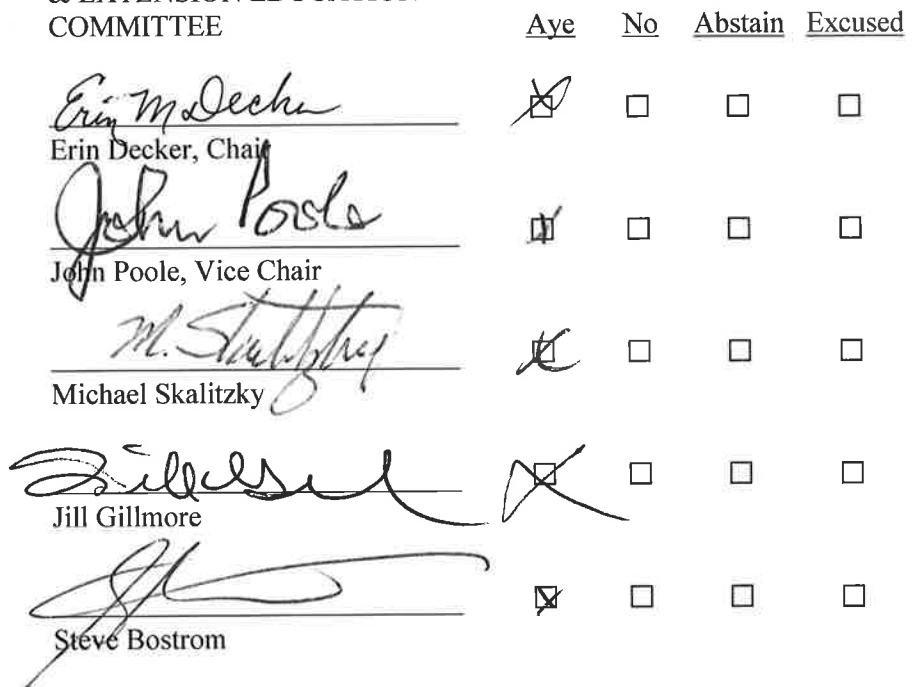 & EXTENSION EDUCATION
COMMITTEE
Aye No Abstain Excused
Erin M Decker
Erin Decker, Chair
John Poole
John Poole, Vice Chair
M. Skalitzky
Michael Skalitzky
Jill Gillmore
Steve Bostrom